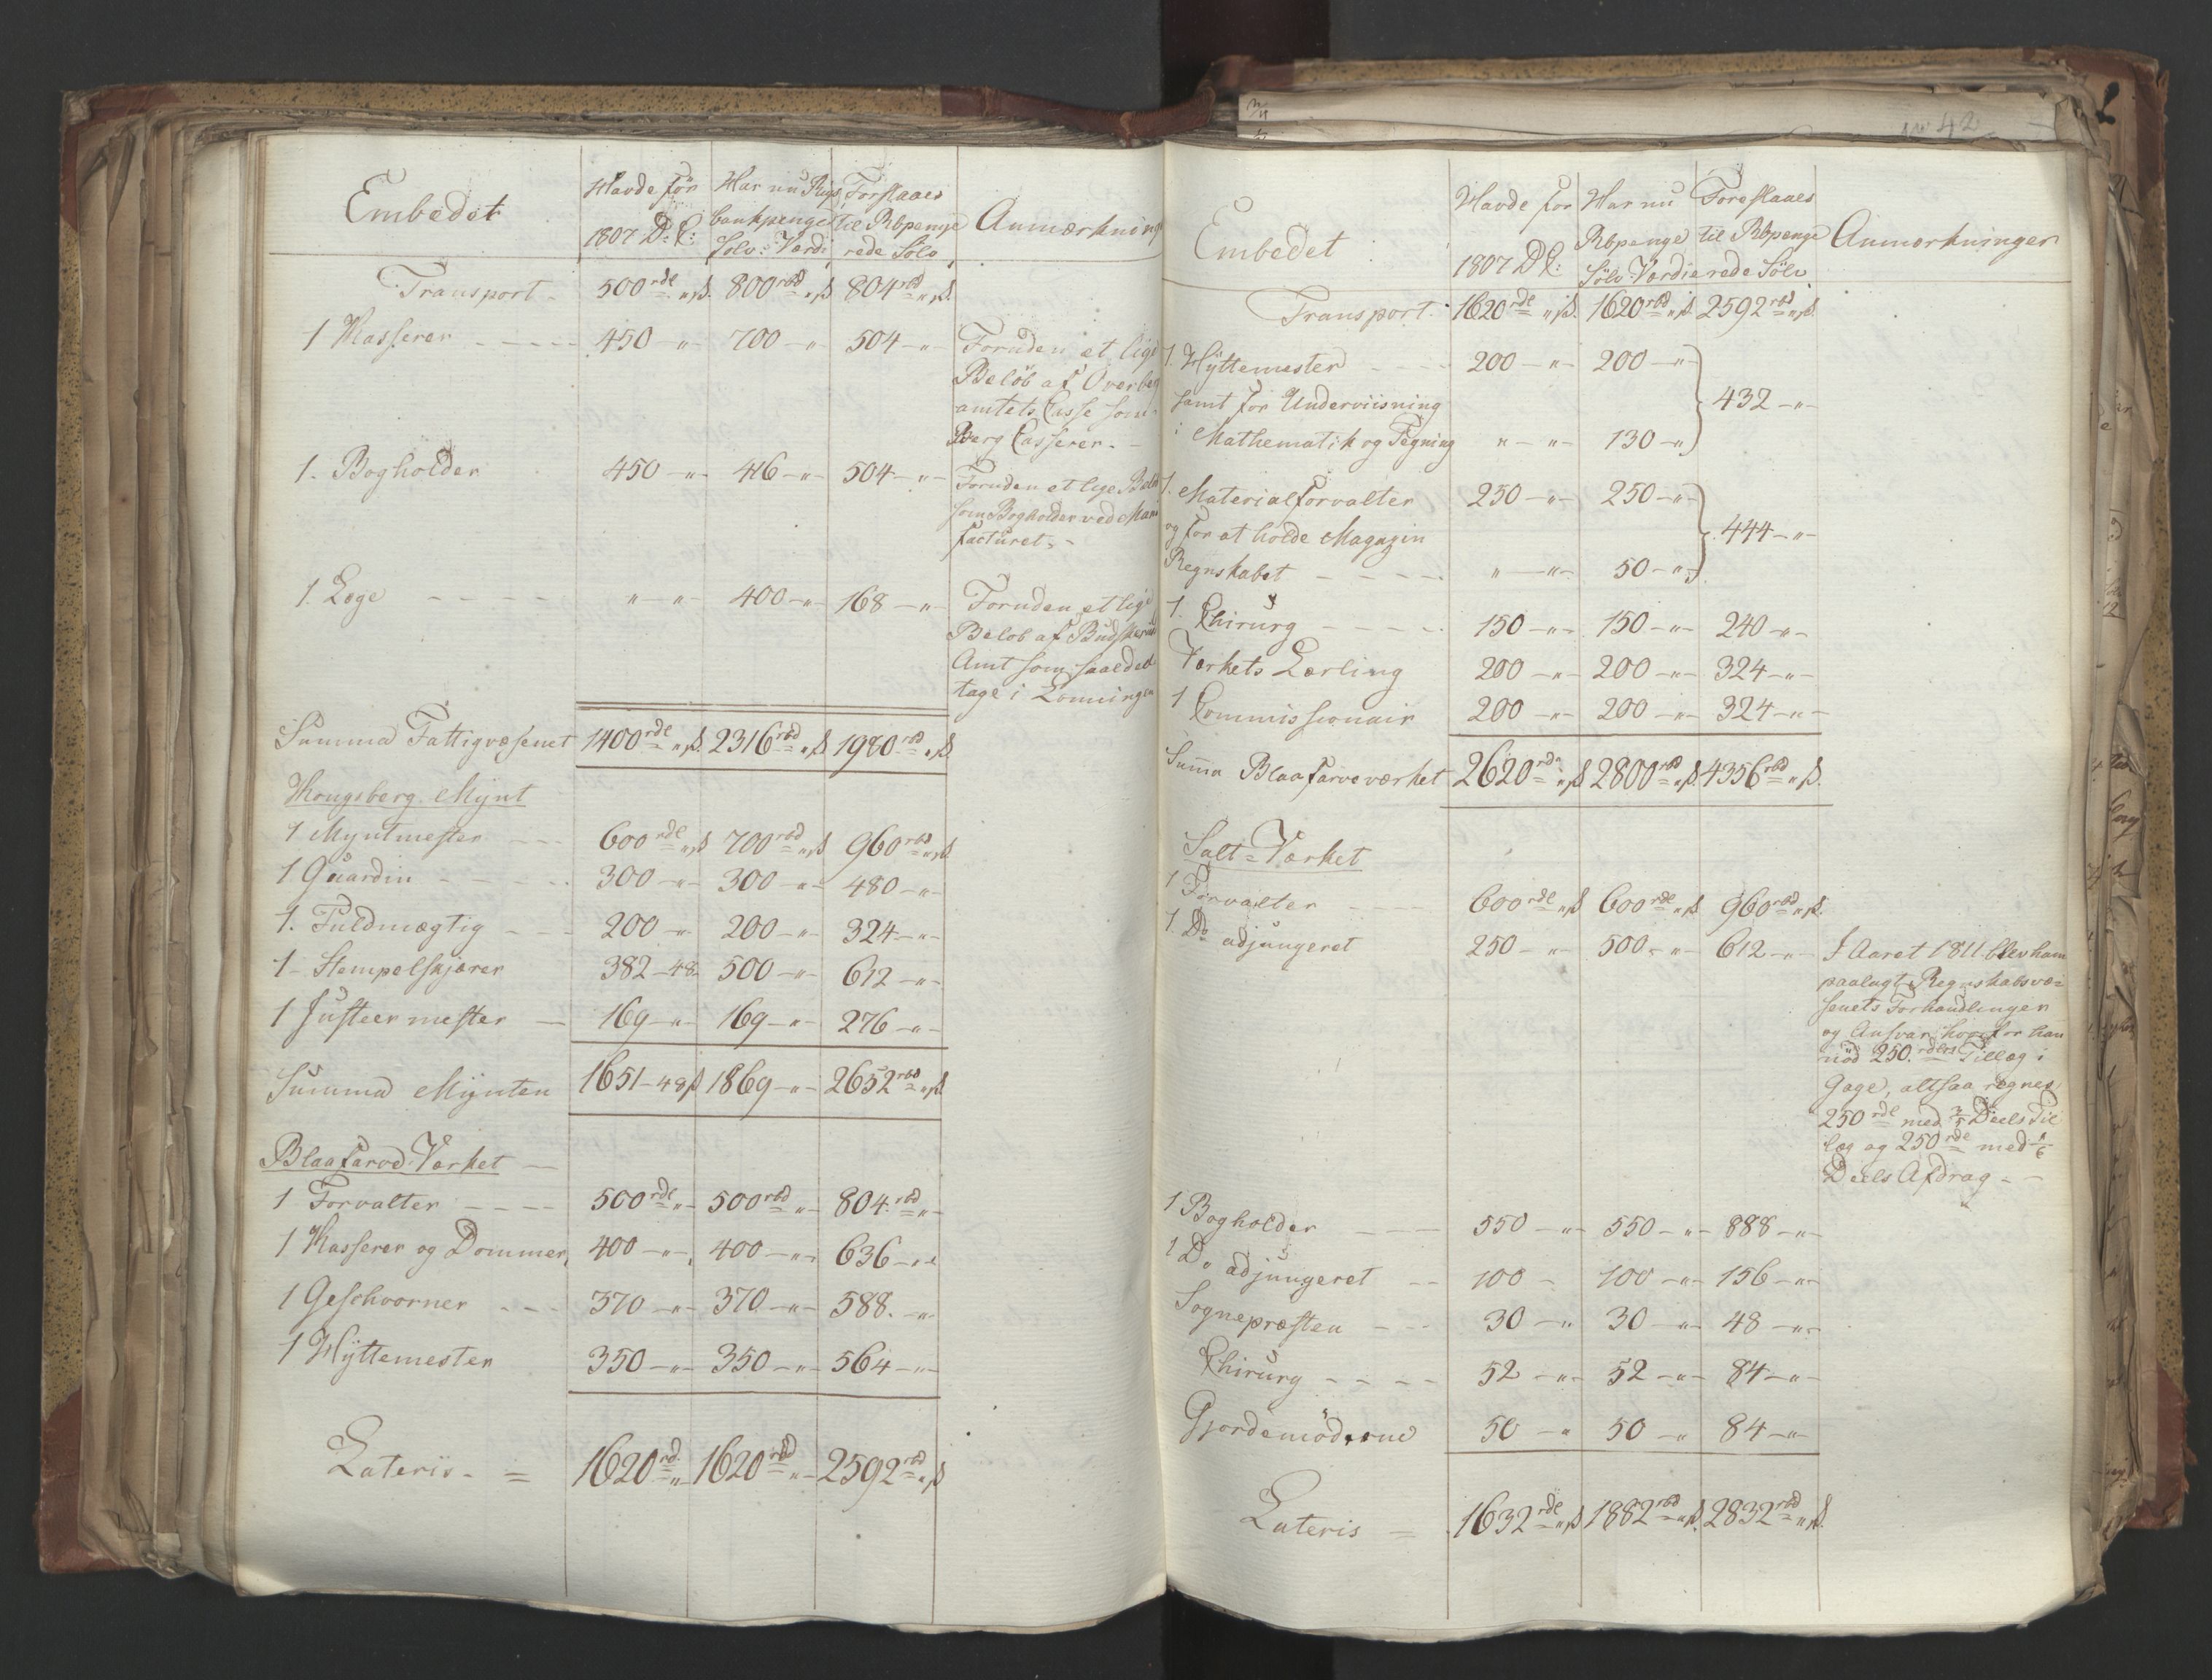 Embedet Havde før Har nu Rigs Forslaaes Anmærkning
1807 D: C: bankpenge til Rbpenge
Sölv: Værdi rede Sölv
Transport - 500 rdl „ ß. 800 rbd „ ß 804 rbd „ ß.
1 Kasserer - - - - 450 — „ - 700 — „ 504 — „ - Foruden et lige
Beløb af Overberg
amtets Casse som
Berg Casserer. -
1. Bogholder 450 — „ - 416 — „ - 504 — „ - Foruden et lige Beløb
som Bogholder ved Manu
facturet. -
1. Læge - - - - „ - „ - 400 — „ - 168 — „ - Foruden et lige
Beløb af Budskerud
Amt som saa deel
tage i Lønningen
Summa Fattigvæsenet 1400 rdl „ ß. 2316 rbd „ ß 1980 rbd „ ß
Kongsberg Mynt
1 Myntmester - - - 600 rdl „ ß 700 rbd „ ß 960 rbd „ ß
1 Guardin - - - - 300 — „ - 300 — „ - 480 — „ -
1. Fuldmægtig - - - 200 — „ - 200 — „ - 324 — „ -
1 - Stempelskjærer 382 — 48 - 500 — „ - 612 — „ -
1 Justeermester — 169 — „ - 169 — „ - 276 — „ -
Summa Mynten 1651 - 48 ß 1869 — „ - 2652 rbd „ ß
Blaafarve-Værket —
1 Forvalter - - - - 500 rdl „ - 500 rbd „ - 804 rbd „ -
1 Kasserer og Dommer, 400 — „ - 400 — „ - 636 — „ -
1 Geschworner - - - 370 — „ - 370 — „ - 588. — „ -
1 Hyttemester 350 — „ - 350 — „ - 564 — „ -
Lateris - = 1620 rd. „ 1620 rbd „ - 2592 rbd „ ß
No 42
Embedet Havde for Har nu Foreslaaes Anmærkninger
1807 D C: Rbpenge til Rbpenge
Sölv: Værdie rede Sölv
Transport 1620 rdl „ ß. 1620 rbd „ ß 2592 rbd „ ß.
1. Hyttemester - - - 200 — „ - 200 — „ -
samt for Underviisning 432 — „ -
i Mathematik og Tegning „ - „ - 130 — „
1. Materialforvalter 250 — „ - 250 — „ -
og for at holde Magazin 444 — „ -
Regnskabet - - - - „ — „ - 50 — „ -
1. Chirurg - - - - 150 — „ - 150 — „ - 240 — „ -
Værkets Lærling 200 — „ - 200 — „ - 324 — „ -
1 Commissionair 200 — „ - 200 — „ - 324 — „ -
Suma Blaafarveværket 2620 rd „ ß 2800 rbd „ ß. 4356 rbd „ ß.
Salt-Værket
1 Forvalter - - - 600 rdl „ ß 600 rdl „ ß 960 rbd „ ß.
1. Do adjungeret 250 — „ - 500 - „ - 612 — „ - I Aaret 1811 blev ham
paalagt Regnskabsvæ-
senets Forhandlinger
og Ansvar, hvorfor han
nød 250 rdlrs Tillæg i
Gage, altsaa regnes
250 rdl med 3/5 Deels Til
læg og 250 rdl med 1/6
Deels Afdrag - -
1 Bogholder - - - 550 — „ - 550 — „ - 888 — „ -
1 Do adjungeret - - 100 - 100 — „ - 156 — „ -
Sognepræsten - - - 30 — „ 30 — „ - 48 — „ -
Chirurg - - - - 52 — „ - 52 — „ - 84 — „ -
Gjordemødrene 50 — „ 50 — „ 84 — „ -
Lateris = 1632 rdl „ ß 1882 rbd „ ß. 2832 rbd „ ß.